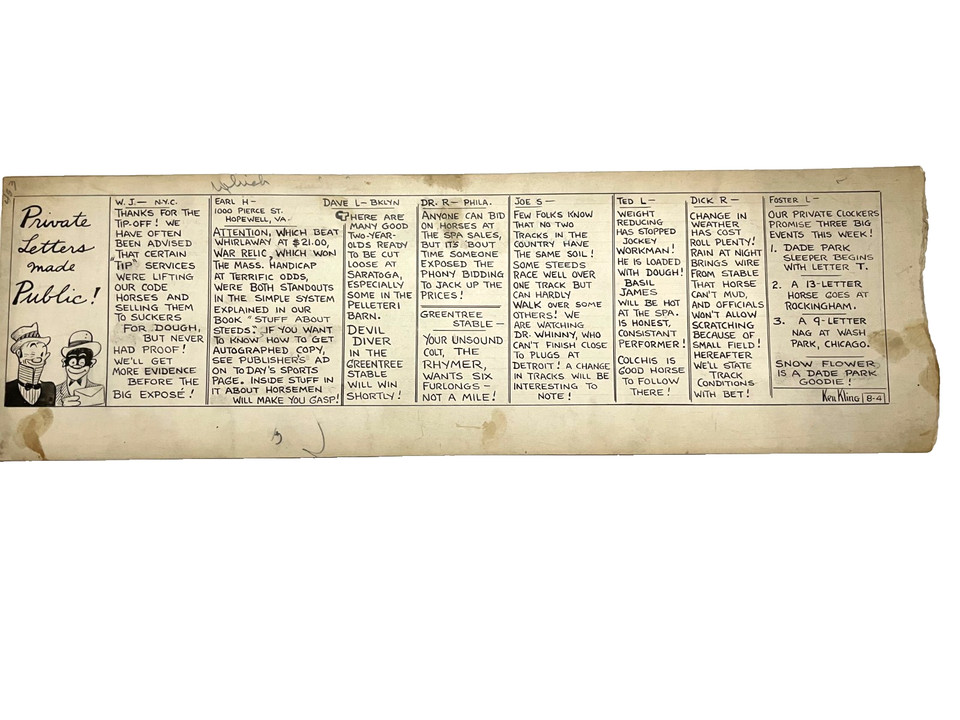 which
Private
Letters
made
Public!
W. J. — N.Y.C.
THANKS FOR THE
TIP-OFF! WE
HAVE OFTEN
BEEN ADVISED
THAT CERTAIN
"TIP" SERVICES
WERE LIFTING
OUR CODE
HORSES AND
SELLING THEM
TO SUCKERS
FOR DOUGH,
BUT NEVER
HAD PROOF!
WE'LL GET
MORE EVIDENCE
BEFORE THE
BIG EXPOSÉ!
EARL H—
1000 PIERCE ST.
HOPEWELL, VA.
ATTENTION, WHICH BEAT
WHIRLAWAY AT $21.00,
WAR RELIC, WHICH WON
THE MASS. HANDICAP
AT TERRIFIC ODDS,
WERE BOTH STANDOUTS
IN THE SIMPLE SYSTEM
EXPLAINED IN OUR
BOOK "STUFF ABOUT
STEEDS". IF YOU WANT
TO KNOW HOW TO GET
AUTOGRAPHED COPY,
SEE PUBLISHERS' AD
ON TODAY'S SPORTS
PAGE. INSIDE STUFF IN
IT ABOUT HORSEMEN
WILL MAKE YOU GASP!
DAVE L— BKLYN
THERE ARE
MANY GOOD
TWO-YEAR-
OLDS READY
TO BE CUT
LOOSE AT
SARATOGA,
ESPECIALLY
SOME IN THE
PELLETERI
BARN.
DEVIL
DIVER
IN THE
GREENTREE
STABLE
WILL WIN
SHORTLY!
DR. R— PHILA.
ANYONE CAN BID
ON HORSES AT
THE SPA SALES,
BUT ITS 'BOUT
TIME SOMEONE
EXPOSED THE
PHONY BIDDING
TO JACK UP THE
PRICES!
GREENTREE
STABLE—
YOUR UNSOUND
COLT, THE
RHYMER,
WANTS SIX
FURLONGS—
NOT A MILE!
JOE S—
FEW FOLKS KNOW
THAT NO TWO
TRACKS IN THE
COUNTRY HAVE
THE SAME SOIL!
SOME STEEDS
RACE WELL OVER
ONE TRACK BUT
CAN HARDLY
WALK OVER SOME
OTHERS! WE
ARE WATCHING
DR. WHINNY, WHO
CAN'T FINISH CLOSE
TO PLUGS AT
DETROIT! A CHANGE
IN TRACKS WILL BE
INTERESTING TO
NOTE!
TED L—
WEIGHT
REDUCING
HAS STOPPED
JOCKEY
WORKMAN!
HE IS LOADED
WITH DOUGH!
BASIL
JAMES
WILL BE HOT
AT THE SPA.
IS HONEST,
CONSISTANT
PERFORMER!
COLCHIS IS
GOOD HORSE
TO FOLLOW
THERE!
DICK R—
CHANGE IN
WEATHER
HAS COST
ROLL PLENTY!
RAIN AT NIGHT
BRINGS WIRE
FROM STABLE
THAT HORSE
CAN'T MUD,
AND OFFICIALS
WON'T ALLOW
SCRATCHING
BECAUSE OF
SMALL FIELD!
HEREAFTER
WE'LL STATE
TRACK
CONDITIONS
WITH BET!
FOSTER L—
OUR PRIVATE CLOCKERS
PROMISE THREE BIG
EVENTS THIS WEEK!
1. DADE PARK
SLEEPER BEGINS
WITH LETTER T.
2. A 13-LETTER
HORSE GOES AT
ROCKINGHAM.
3. A 9-LETTER
NAG AT WASH
PARK, CHICAGO.
SNOW FLOWER
IS A DADE PARK
GOODIE!
Ken Kling 8-4